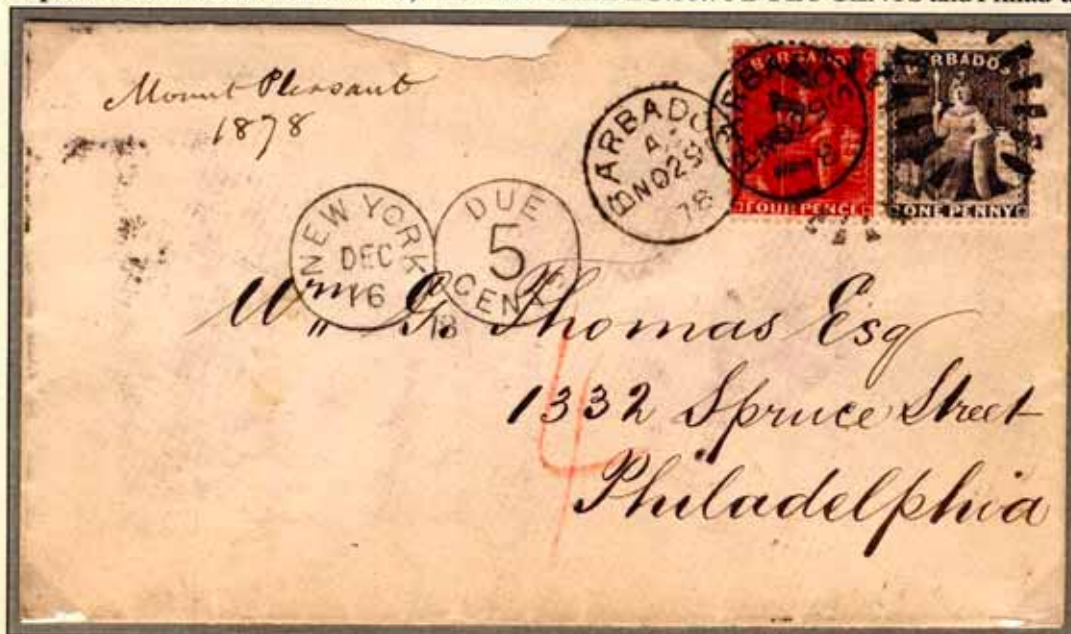 CENTS and Philad
Mount Pleasant
1878
BARBADO
A
NO 29
78
BARBADOS
NO 29
8
BARBADOS
FOUR PENCE
BARBADOS
ONE PENNY
NEW YORK
DEC
16
78
DUE
5
CENTS
4
Wm G. Thomas Esq
1332 Spruce Street
Philadelphia